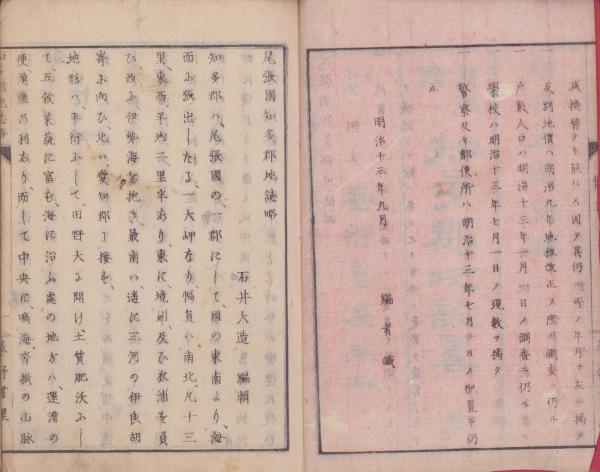 減換替テ能ハス因テ其仍
一 反別地價ハ明治九年地租改正ノ際ノ調査ニ仍ル
一 戸數人口ハ明治十三年一月一日ノ調査ニ仍ル
一 學校ハ明治十三年七月一日ノ現數ヲ揭ク
一 警察及ヒ郵便所ハ明治十三年七月 日ノ配置ニ仍
ル
明治十三年九月
編者識
尾張國知多郡地誌略
石井大造 編輯
知多郡ハ、尾張國の一郡にして、國の東南より、海
面に張出したる、一大岬なり、幅員ハ、南北凡十三
里、東西平均二里半あり、東に境川、及び衣浦を負
ひ、西に伊勢海を抱き、最南の邊に三河の伊良胡
崎に向ひ、北ハ、愛知郡に接を、
地形ハ、平衍にして、田野大に開け、土質肥沃にし
て、五穀菜蔬に富む、海に沿ふ處の地方ハ、運漕の
便、漁鹽の利あり、而して中央に、鳴海沓掛の山脈